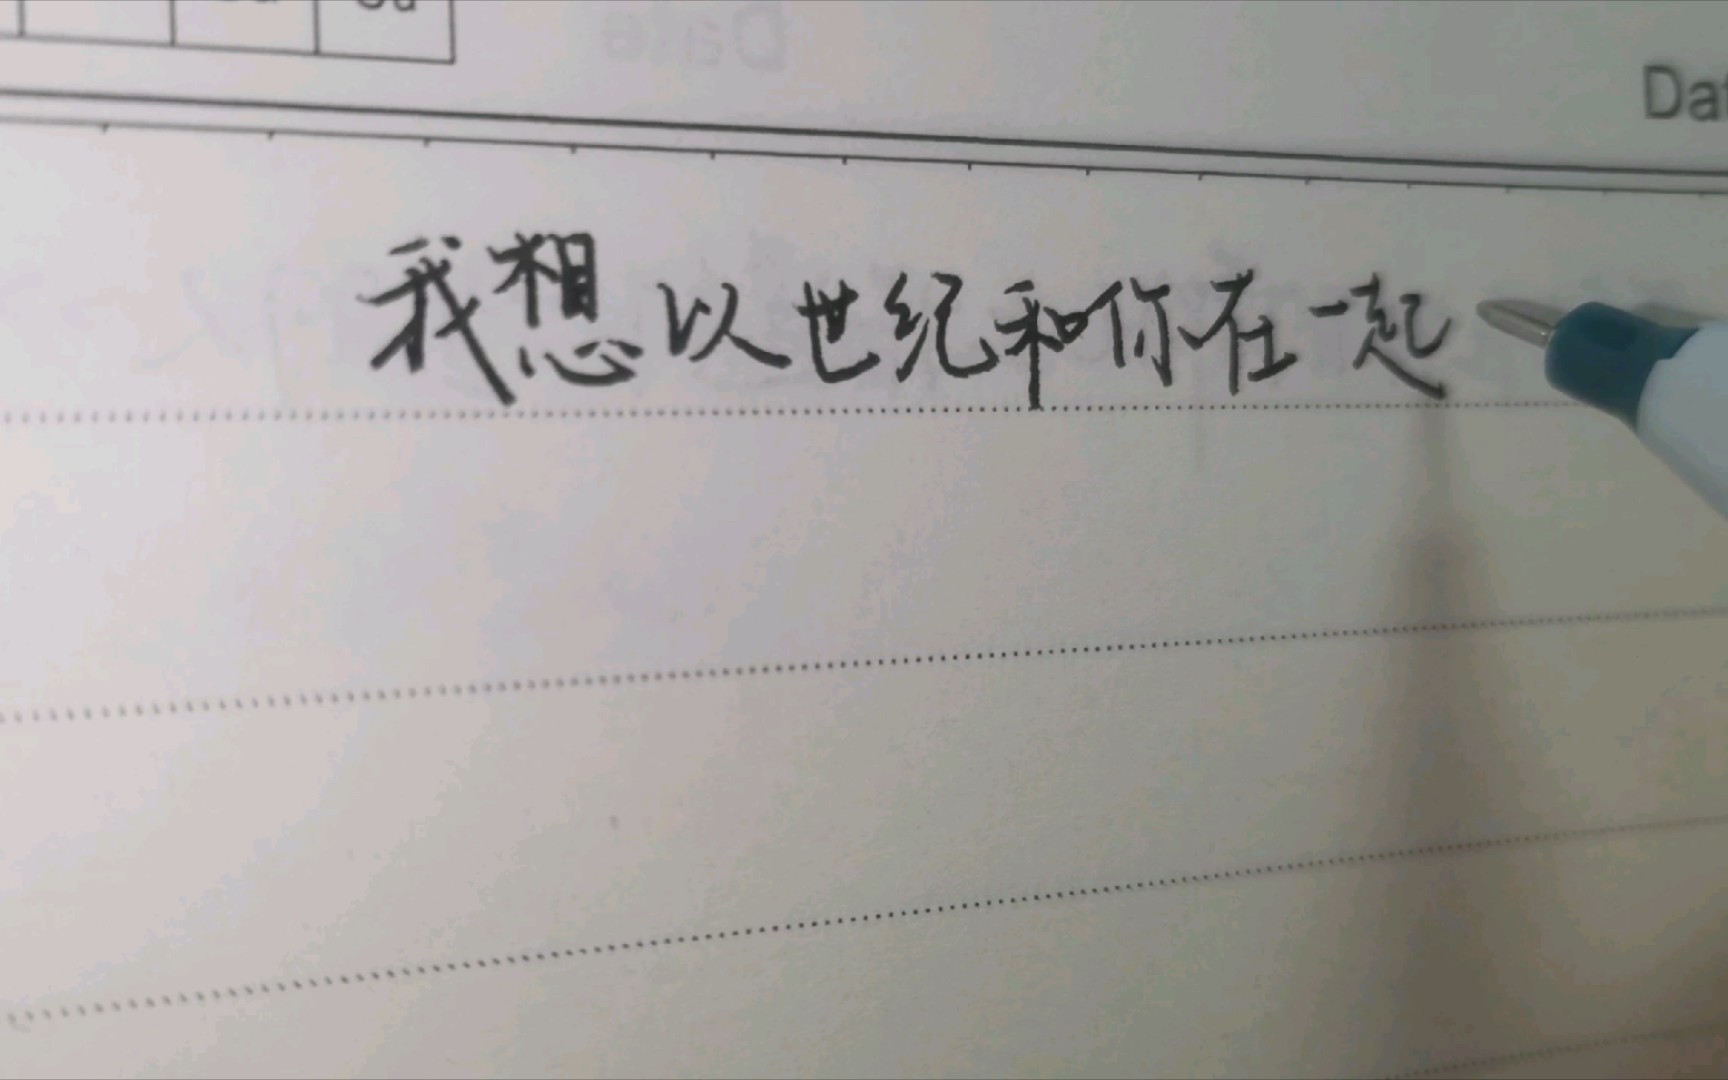 Da
我想以世纪和你在一起